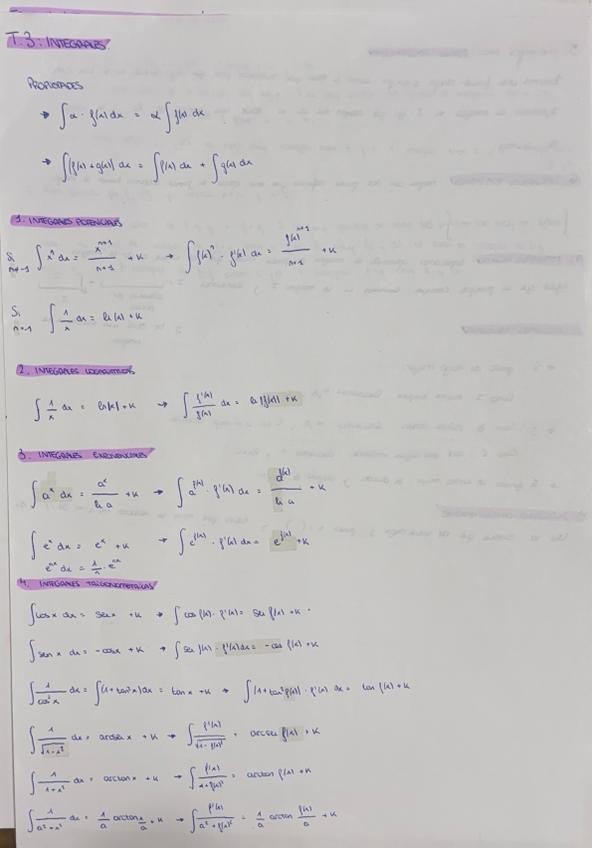 T.3: INTEGRALES
PROPIEDADES
→ ∫α · f(x) dx = α ∫f(x) dx
→ ∫(f(x)+g(x)) dx = ∫f(x) dx + ∫g(x) dx
1. INTEGRALES POTENCIALES
Si n≠-1 ∫xⁿ dx = xⁿ⁺¹/n+1 + K → ∫f(x)ⁿ · f'(x) dx = f(x)ⁿ⁺¹/n+1 + K
Si ∫1/x dx = ln|x| + K
2. INTEGRALES LOGARITMICAS
∫1/x dx = ln|x| + K → ∫f'(x)/f(x) dx = ln|f(x)| + K
3. INTEGRALES EXPONENCIALES
∫aˣ dx = aˣ/ln a + K → ∫a^f(x) · f'(x) dx = a^f(x)/ln a + K
∫eˣ dx = eˣ + K → ∫e^f(x) · f'(x) dx = e^f(x) + K
4. INTEGRALES TRIGONOMETRICAS
∫cos x dx = sen x + K → ∫cos f(x) · f'(x) = sen f(x) + K
∫sen x dx = -cos x + K → ∫sen f(x) · f'(x) dx = -cos f(x) + K
∫1/cos²x dx = ∫(1+tan²x) dx = tan x + K → ∫(1+tan²f(x)) · f'(x) dx = tan f(x) + K
∫1/√1-x² dx = arcsen x + K → ∫f'(x)/√1-f(x)² = arcsen f(x) + K
∫1/1+x² dx = arctan x + K → ∫f'(x)/1+f(x)² = arctan f(x) + K
∫1/a²+x² dx = 1/a arctan x/a + K → ∫f'(x)/a²+f(x)² = 1/a arctan f(x)/a + K